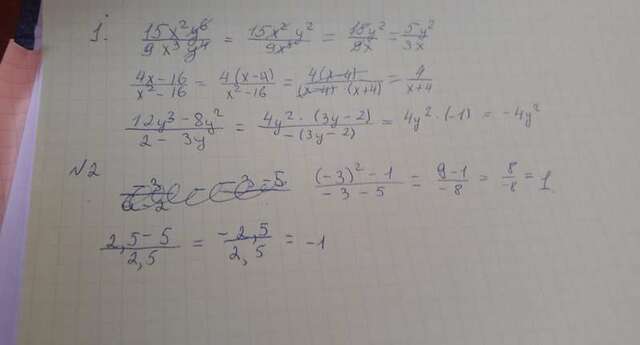 1. 15x²y⁶/9x³y⁴ = 15x²y²/9x³ = 15y²/9x = 5y²/3x
4x-16/x²-16 = 4(x-4)/x²-16 = 4(x-4)/(x-4)·(x+4) = 4/x+4
12y³-8y²/2-3y = 4y²·(3y-2)/-(3y-2) = 4y²·(-1) = -4y²
№2 (-3)²-1/-3-5 = 9-1/-8 = 8/-8 = 1
2,5-5/2,5 = -2,5/2,5 = -1